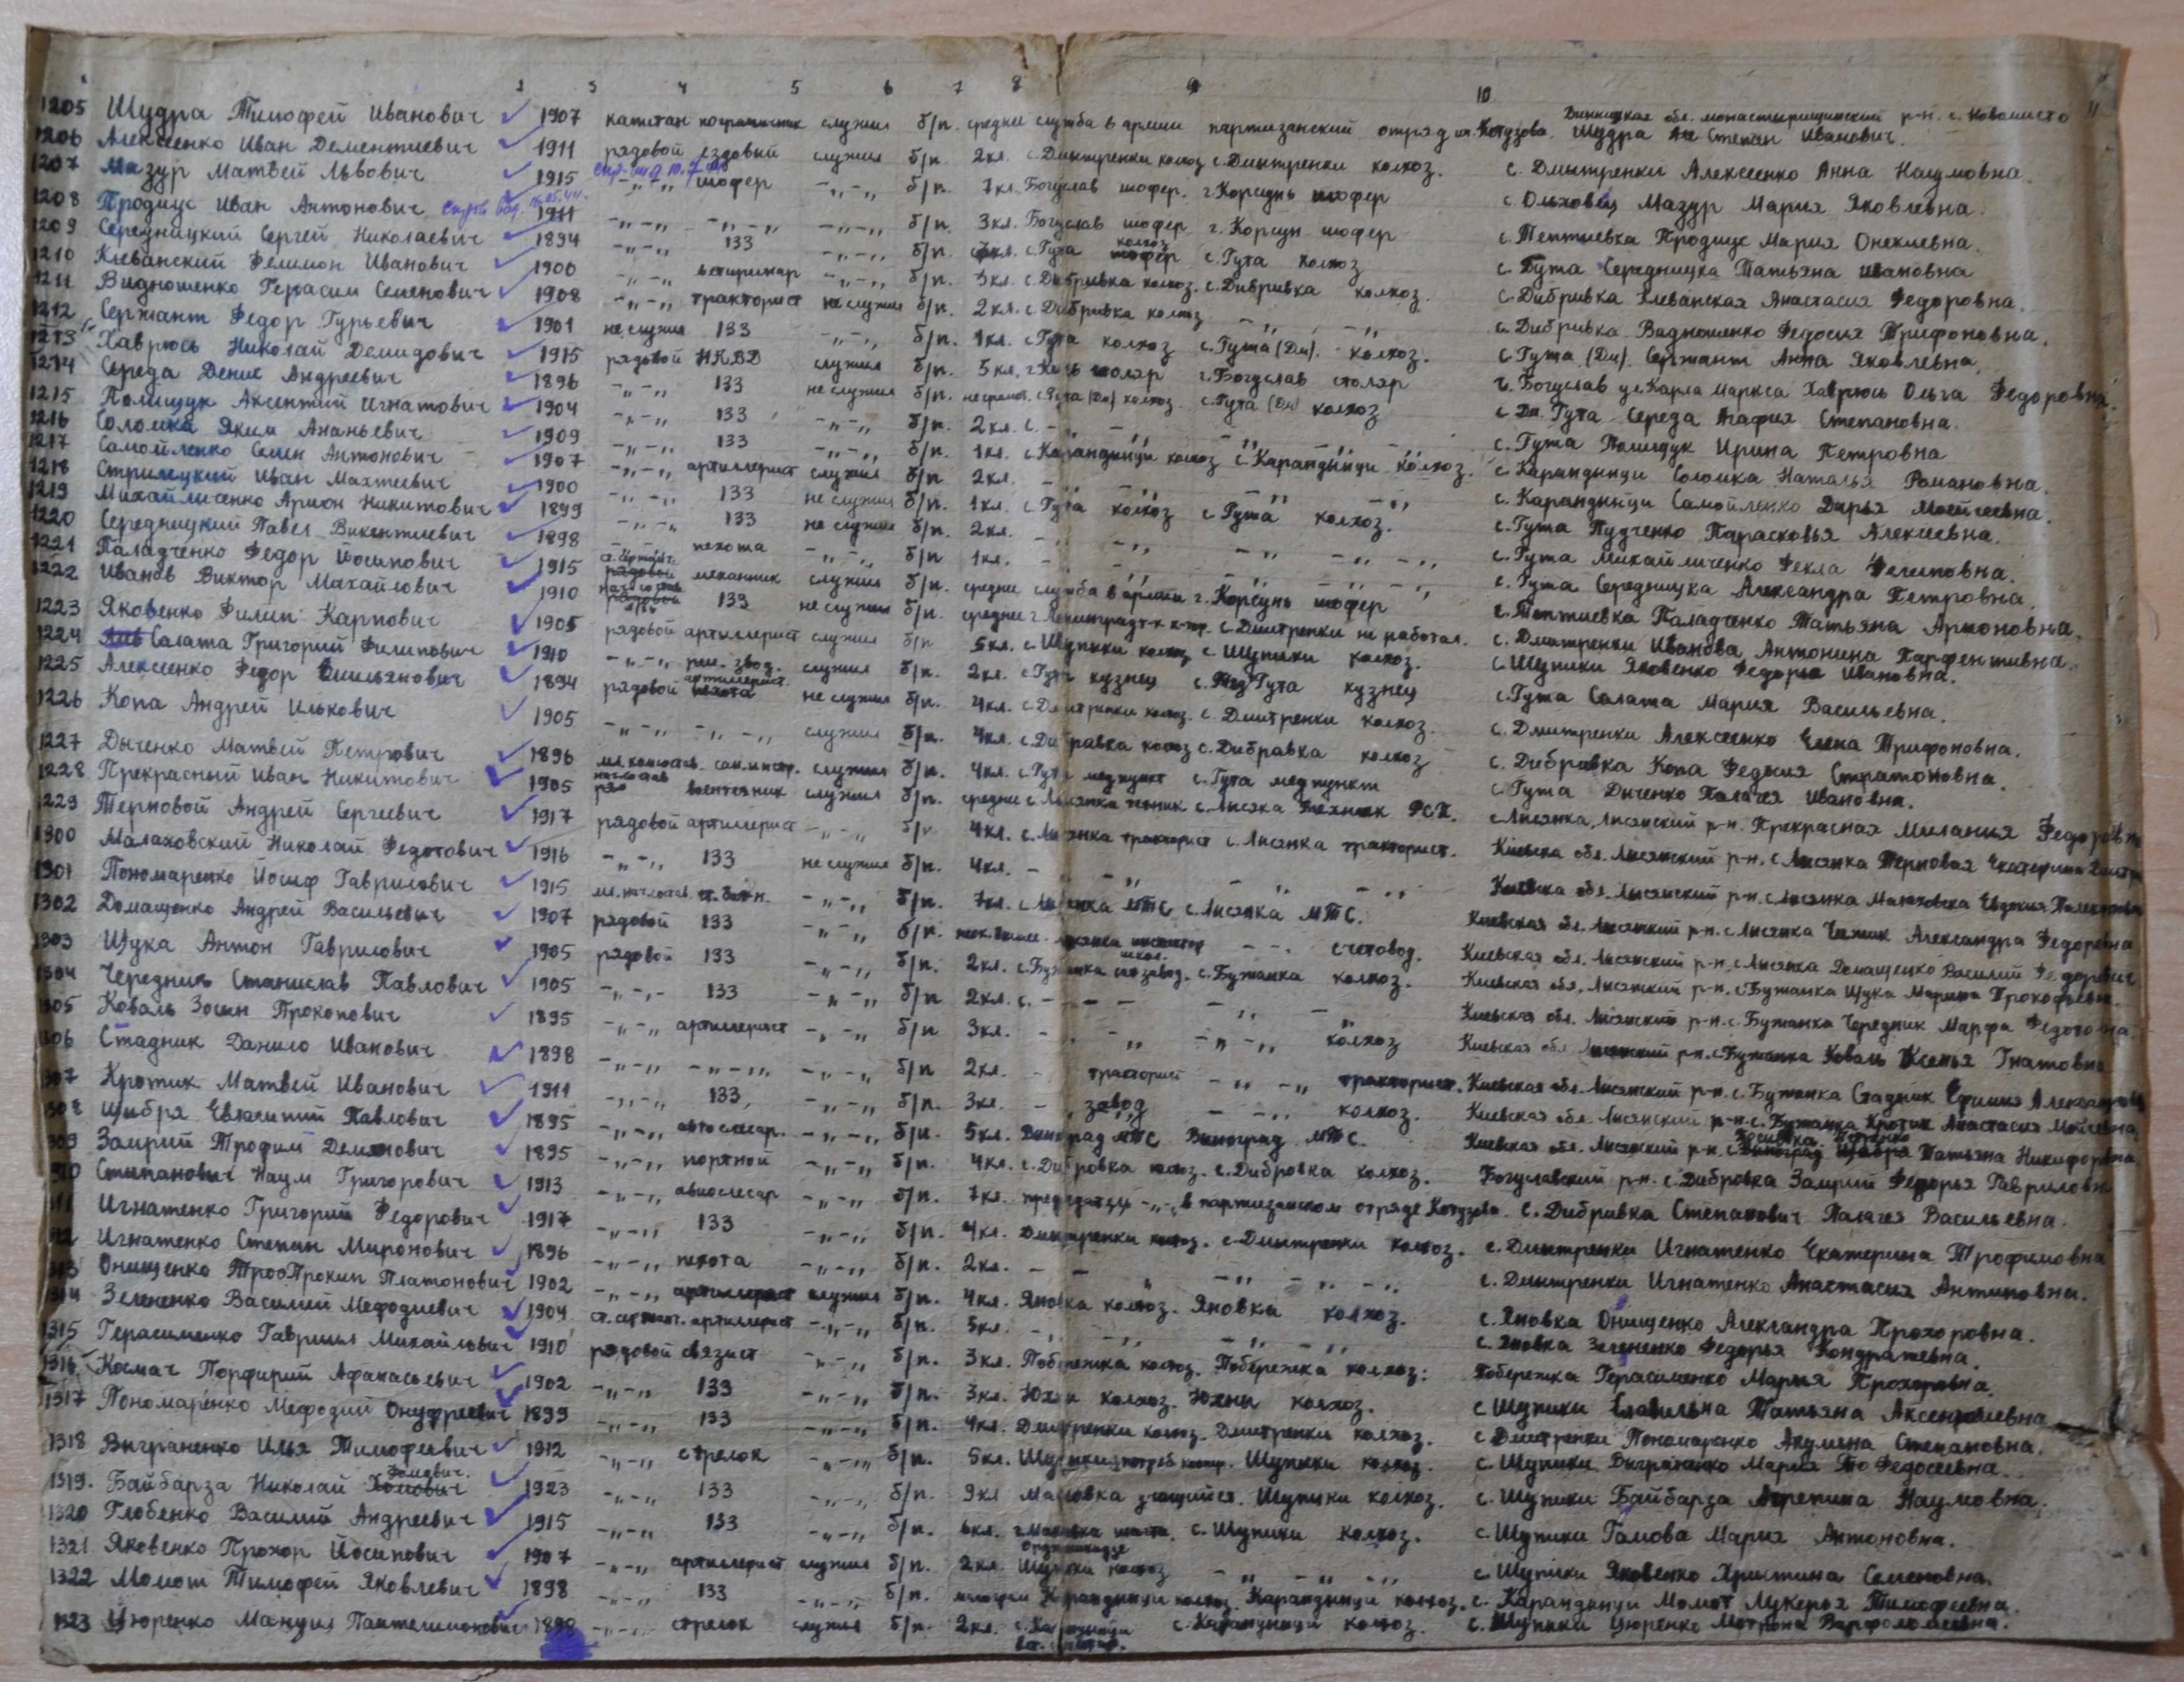 2 3 4 5 6 7 8 9 10 11
1205 Шудра Тимофей Иванович 1907 капитан пограничник служил б/п. средне служба в армии партизанский отряд им. Котузова. Винницкая обл. монастырищенский р-н. с. Новоместо Шудра Степан Иванович.
1206 Алексеенко Иван Дементиевич 1911 рядовой ездовый служил б/п. 2 кл. с. Дмитренки колхоз с. Дмитренки колхоз. с. Дмитренки Алексеенко Анна Наумовна.
1207 Мазур Матвей Львович 1915 -„-„ шофер -„-„ б/п. 7 кл. Богуслав шофер. г. Корсунь шофер с. Ольховец Мазур Мария Яковлевна.
1208 Продиус Иван Антонович 1911 -„-„ -„-„ -„-„ б/п. 3 кл. Богуслав шофер г. Корсун шофер с. Тептиевка Продиус Мария
1209 Середницкий Сергей Николаевич 1894 -„-„ 133 -„-„ б/п. с. Гута колхоз с. Гута колхоз с. Гута Середницка Татьяна Ивановна
1210 Клеванский Фелимон Иванович 1900 -„-„ ветиринар -„-„ б/п. 3 кл. с. Дибривка колхоз. с. Дибривка колхоз. с. Дибривка Клеванская Анастасия Федоровна.
1211 Видношенко Герасим Семенович 1908 -„-„ тракторист не служил б/п. 2 кл. с. Дибривка колхоз -„ -„ с. Дибривка Видношенко Федосия Трифоновна.
1212 Сержант Федор Гурьевич 1901 не служил 133 -„-„ б/п. 1 кл. с. Гута колхоз с. Гута (Дм). колхоз. с. Гута (Дм). Сержант Анна Яковлевна.
1213 Хаврюсь Николай Демидович 1915 рядовой НКВД служил б/п. 5 кл. столяр г. Богуслав столяр г. Богуслав ул. Карла Маркса Хаврюсь Ольга Федоровна.
1214 Середа Денис Андреевич 1896 -„-„ 133 не служил б/п. с. Гута (Дм) колхоз. с. Гута (Дм) колхоз с. Дм. Гута Середа Агафия Степановна.
1215 Полищук Аксентий Игнатович 1904 -„-„ 133 -„-„ б/п. 2 кл. с. -„ -„ с. Гута Полищук Ирина Петровна
1216 Соломка Яким Ананьевич 1909 -„-„ 133 -„-„ б/п. 1 кл. с. Карандинци колхоз с. Карандынци колхоз. с. Карандинци Соломка Наталья Романовна.
1217 Самойленко Семен Антонович 1907 -„-„ артиллерист служил б/п 2 кл. -„ -„ с. Карандинци Самойленко Дарья Моисеевна.
1218 Стрилецкий Иван 1900 -„-„ 133 не служил б/п. 1 кл. с. Гута колхоз с. Гута колхоз. с. Гута Пудченко Парасковья Алексеевна.
1219 Михайличенко Арион Никитович 1899 -„-„ 133 не служил б/п. 2 кл. -„ -„ с. Гута Михайличенко Фекла Фелиповна.
1220 Середницкий Павел Викентиевич 1898 -„-„ пехота -„-„ б/п 1 кл. -„ -„ с. Гута Середницка Александра Петровна.
1221 Паладченко Федор Йосипович 1915 механник служил б/п. средне служба в армии г. Корсунь шофер с. Тептиевка Паладченко Татьяна Арионовна.
1222 Иванов Виктор Михайлович 1910 133 не служил б/п. средне г. Ленинград с. Дмитренки не работал. с. Дмитренки Иванова Антонина Парфентивна.
1223 Яковенко Филип Карпович 1905 рядовой артиллерист служил б/п 5 кл. с. Щупики колхоз с. Щупики колхоз. с. Щупики Яковенко Федорья Ивановна.
1224 Салата Григорий Филипович 1910 -„-„ служил б/п. 2 кл. с. Гута кузнец с. Гута кузнец с. Гута Салата Мария Васильевна.
1225 Алексеенко Федор Емильянович 1894 рядовой артиллерист. не служил б/п. 4 кл. с. Дмитренки колхоз. с. Дмитренки колхоз. с. Дмитренки Алексеенко Елена Трифоновна.
1226 Копа Андрей Илькович 1905 -„-„ -„-„ служил б/п. 4 кл. с. Дибравка колхоз с. Дибравка колхоз с. Дибривка Копа Стратоновна.
1227 Дыченко Матвей Петрович 1896 мл. комсостав служил б/п. 4 кл. с. Гута медпункт с. Гута медпункт с. Гута Дыченко Палагея Ивановна.
1228 Прекрасный Иван Никитович 1905 воентехник служил б/п. средне с. Лисянка техник с. Лисянка с. Лисянка, Лисянский р-н. Прекрасная Милания Федоровна
1229 Терновой Андрей Сергеевич 1917 рядовой артиллерист -„-„ б/п 4 кл. с. Лисянка тракторист с. Лисянка тракторист. Киевска обл. Лисянский р-н. с. Лисянка Терновая Екатерина
1300 Малаховский Николай Федотович 1916 -„-„ 133 не служил б/п. 4 кл. -„ -„ Киевска обл. Лисянский р-н. с. Лисянка Малаховска Евдокия
1301 Пономаренко Йосиф Гаврилович 1915 -„-„ б/п. 7 кл. с. Лисянка МТС с. Лисянка МТС. Киевская обл. Лисянский р-н. с. Лисянка Александра Федоровна
1302 Домащенко Андрей Васильевич 1907 рядовой 133 -„-„ б/п. счетовод. Киевская обл. Лисянский р-н, с. Лисянка Домащенко Василий Федорович
1303 Щука Антон Гаврилович 1905 рядовой 133 -„-„ б/п. 2 кл. с. Бужанка с. Бужанка колхоз. Киевская обл. Лисянский р-н. с. Бужанка Щука Марина Прокофьевна.
1304 Чередник Станислав Павлович 1905 -„-„ 133 -„-„ б/п 2 кл. с. -„ -„ Киевская обл. Лисянский р-н. с. Бужанка Чередник Марфа Федотовна.
1305 Коваль Зосим Прокопович 1895 -„-„ артиллерист -„-„ б/п 3 кл. -„ -„ колхоз Киевская обл. Лисянский р-н. с. Бужанка Коваль Ксенья Гнатовна
1306 Стадник Данило Иванович 1898 -„-„ -„-„ -„-„ б/п 2 кл. тракторист -„-„ тракторист. Киевская обл. Лисянский р-н. с. Бужанка Стадник
1307 Кротик Матвей Иванович 1911 -„-„ 133, -„-„ б/п. 3 кл. -„ завод -„ колхоз. Киевская обл. Лисянский р-н. с. Бужанка Кротик Анастасия Мойсеевна
1308 Цибря Павлович 1895 -„-„ автослесар. -„-„ б/п. 5 кл. Виноград МТС Виноград МТС. Киевская обл. Лисянский р-н. Татьяна Никифоровна
1309 Заирий Трофим Демянович 1895 -„-„ портной -„-„ б/п. 4 кл. с. Дибровка колхоз. с. Дибровка колхоз. Богуславский р-н. с. Дибровка Заирий Федорья Гавриловн
1310 Степанович Наум Григорович 1913 -„-„ авиослесар -„-„ б/п. 7 кл. председатель -„-„ в партизанском отряде Котузова. с. Дибривка Степанович Палагея Васильевна.
1311 Игнатенко Григорий Федорович 1917 -„-„ 133 -„-„ б/п. 4 кл. Дмитренки колхоз. с. Дмитренки колхоз. с. Дмитренки Игнатенко Екатерина Трофимовна
1312 Игнатенко Степан Миронович 1896 -„-„ пехота -„-„ б/п. 2 кл. -„ -„ с. Дмитренки Игнатенко Анастасия Антиповна.
1313 Онищенко Прокип Платонович 1902 -„-„ артиллерист служил б/п. 4 кл. Яновка колхоз. Яновка колхоз. с. Яновка Онищенко Александра Прохоровна.
1314 Зелененко Василий Мефодиевич 1904 ст. сержант. артиллерист -„-„ б/п. 5 кл. -„ -„ с. Яновка Зелененко Федорья Кондратевна.
1315 Герасименко Гавриил Михайльвич 1910 рядовой связист -„-„ б/п. 3 кл. Побережка колхоз. Побережка колхоз. Побережка Герасименко Мария Прохоровна.
1316 Космач Порфирий Афанасьевич 1902 -„-„ 133 -„-„ б/п. 3 кл. Юхны колхоз. Юхны колхоз. с. Щупики Татьяна
1317 Пономаренко Мефодий Онуфриевич 1899 -„-„ 133 -„-„ б/п. 4 кл. Дмитренки колхоз. Дмитренки колхоз. с. Дмитренки Пономаренко Акулина Степановна.
1318 Выграненко Илья Тимофеевич 1912 -„-„ стрелок -„-„ б/п. 5 кл. Щупики Щупики колхоз. с. Щупики Выграненко Мария Федосеевна.
1319. Байбарза Николай Фомович 1923 -„-„ 133 -„-„ б/п. 9 кл учащийся. Щупики колхоз. с. Щупики Байбарза Агрепина Наумовна.
1320 Глобенко Василий Андреевич 1915 -„-„ 133 -„-„ б/п. 6 кл. с. Щупики колхоз. с. Щупики Гамова Мария Антоновна.
1321 Яковенко Прохор Йосипович 1907 -„-„ артиллерист служил б/п. 2 кл. Щупики колхоз -„ -„ с. Щупики Яковенко Христина Семеновна.
1322 Момот Тимофей Яковлевич 1898 -„-„ 133 -„-„ б/п. Карандинци колхоз. Карандынци колхоз. с. Карандинци Момот Лукерья Тимофеевна.
1323 Цюренко Мануил Пантелимонович 1898 -„-„ стрелок служил б/п. 2 кл. с. Карандинци с. Карандинци колхоз. с. Щупики Цюренко Мотрона Варфоломеевна.